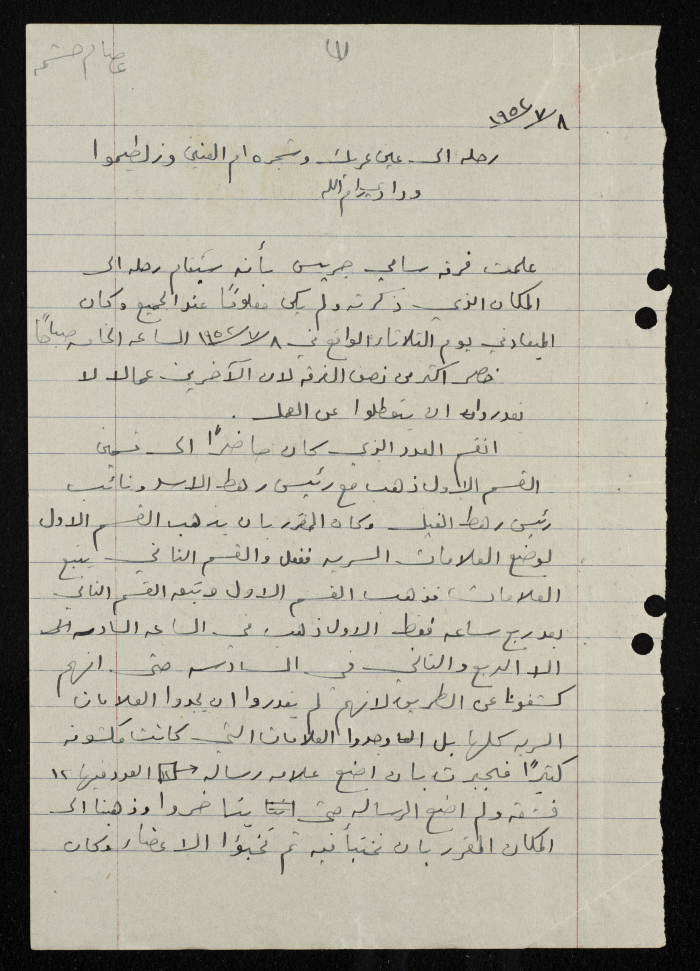 (١)
عصام حشمه
١٩٥٢/٧/٨
رحله الى عين عريك وشجره ام العنين وزلطيموا
ووادي رام الله
علمت فرقه سامي جريس بأنه ستقام رحله الى
المكان الذي ذكرته ولم يكن معلومًا عند الجميع وكان
الميعاد في يوم الثلاثاء الواقع في ١٩٥٢/٧/٨ الساعه الخامسه صباحًا
حضر اكثر من نصف الفرقه لان الآخرين عمالا لا
يقدروا ان يتعطلوا عن العمل .
انقسم العدد الذي كان حاضرًا الى قسمين
القسم الاول ذهب مع رئيس رهط الاسد ونائب
رئيس رهط الفيل وكان المقرر بان يذهب القسم الاول
لوضع العلامات السريه ففعل والقسم الثاني يتبع
العلامات ، فذهب القسم الاول وتبعه القسم الثاني
بعد ربع ساعه فقط الاول ذهب في الساعه السادسه
الا الربع والثاني في السادسه حتى انهم
كشفونا عن الطريق لانهم لم يقدروا ان يجدوا العلامات
السريه كلها بل وجدوا العلامات التي كانت مكشوفه
كثيرًا فجبرت بان اضع علامه رساله العدد فيها ١٢
ولم اضع الرساله حتى يتاخروا وذهبنا الى
المكان المقرر بان نختبأ فيه ثم تخبؤا الاعضاء وكان